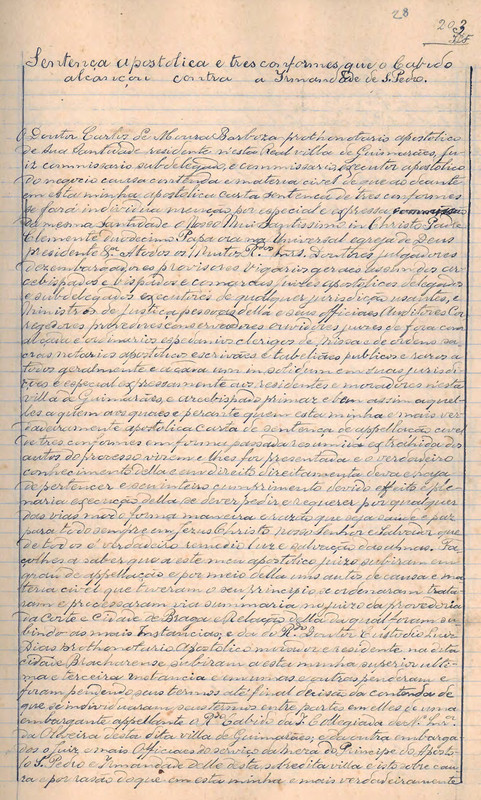 28
203
Sentença apostolica e tres conformes, que o Cabido
alcançou contra a Irmandade de S. Pedro.
O Doutor Carlos de Moura Barboza prothonotario apostolico
de Sua Santidade residente n'esta Real villa de Guimarães, ju-
iz commissario subdelegado, e commissario executor apostolico
do negocio causa contenda e materia civel de que ao deante
em esta minha apostolica carta sentença de tres conformes
se fará individua menção por especial e expressa commissão
da mesma Santidade o Nosso Mui Santissimo in Christo Padre
Clemente duodecimo Papa ora na Universal egreja de Deus
presidente &a. A todos os Muito Rdos Snrs. Doutores julgadores
desembargadores provisores Vigarios geraes assim dos ar-
cebispados e bispados e comarcas, juizes apostolicos delegados
e subdelegados executores de qualquer jurisdição usantes, e
Ministros de justiça pessoas della e seus officiaes Auditores Cor-
regedores provedores conservadores ouvidores juizes de fora com
alçada e ordinarios escrivães clerigos de Missa e de ordens sa-
cras notarios apostolicos escrivães e tabeliães publicos e raros a
todos geralmente e a cada um in solidum em suas jurisdi-
ções e especial e expressamente aos residentes e moradores n'esta
villa de Guimarães, e arcebispado primaz e bem assim aquel-
les a quem aos quaes e perante quem esta minha e mais ver-
dadeiramente apostolica carta de sentença de appellação civel
de tres conformes em forma passada resumida e extrahida dos
autos do processo virem e lhes for presentada e o verdadeiro
conhecimento della e em direito direitamente deva e haja
de pertencer e seu inteiro cumprimento devido effeito e ple-
naria execução della se dever pedir e requerer por quaesquer
das vias modo forma maneira e razão que seja saude e paz
para todo sempre em Jezus Christo nosso Senhor e Salvador que
de todos é verdadeiro remedio luz e salvação das almas. Fa-
ço-lhes a saber que a este meu apostolico juizo subiram em
grau de appellação e por meio della uns autos de causa e ma-
teria civel que tiveram o seu principio e ordenaram trata-
ram e processaram via summaria no juizo da provedoria
da Corte e Cidade de Braga e Relação della da qual foram su-
bindo as mais Instancias; e da do Rdo Doutor Custodio Luiz
Dias prothonotario Apostolico morador e residente na dita
cidade Bracharense subiram a esta minha superior ulti-
ma e terceira Instancia e em umas e outras penderam e
foram pendendo seus termos até final decisão da contenda de
que se individuaram seus termos entre partes em elles de uma
embargante appellante o Rdo Cabido da I. Collegiada de N. Snra
da Oliveira desta dita villa de Guimarães; e da outra embarga-
dos o juiz e mais Officiaes do serviço da Meza do Principe do Aposto-
lo S. Pedro e Irmandade delle desta sobredita villa e isto sobre cau-
za e por rasão do que em esta minha e mais verdadeiramente